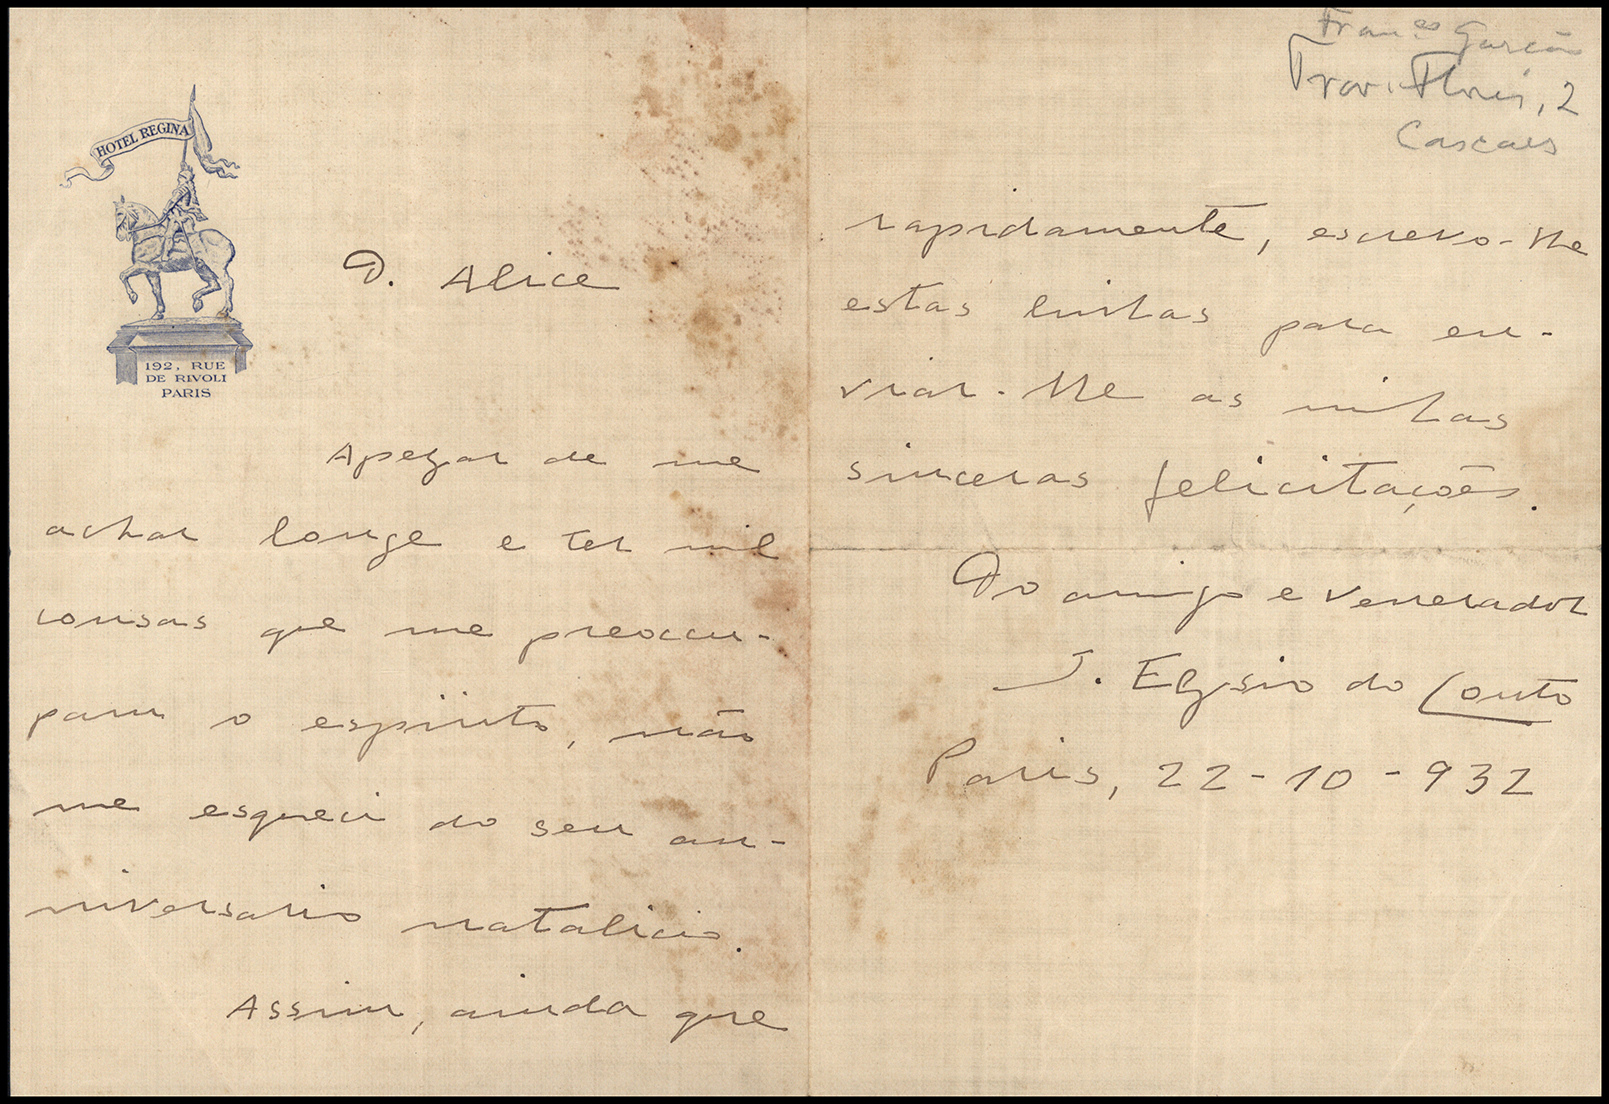 HOTEL REGINA
192, RUE
DE RIVOLI
PARIS
D. Alice
Apezar de me
achar longe e ter mil
cousas que me preoccu-
pam o espirito, não
me esqueci do seu an-
niversario natalicio.
Assim, ainda que
Garção
Trav. Flores, 2
Cascaes
rapidamente, escrevo-lhe
estas linhas para en-
viar-lhe as mihas
sinceras felicitações.
Do amigo e venerador
J. Elysio do Couto
Paris, 22-10-932